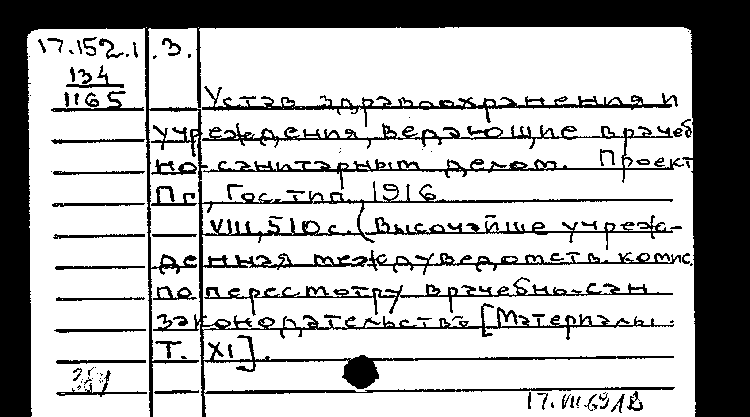 17.152.1.3.
134
1165
Устав здравоохранения и
учреждения, ведающие врачеб
но-санитарным делом. Проект
Пг, Гос. тип., 1916.
VIII, 510 с. (Высочайше учреж-
денная междуведомств. комис
по пересмотру врачебно-сан.
законодательства [Материалы.
Т. XI].
17.VII.69